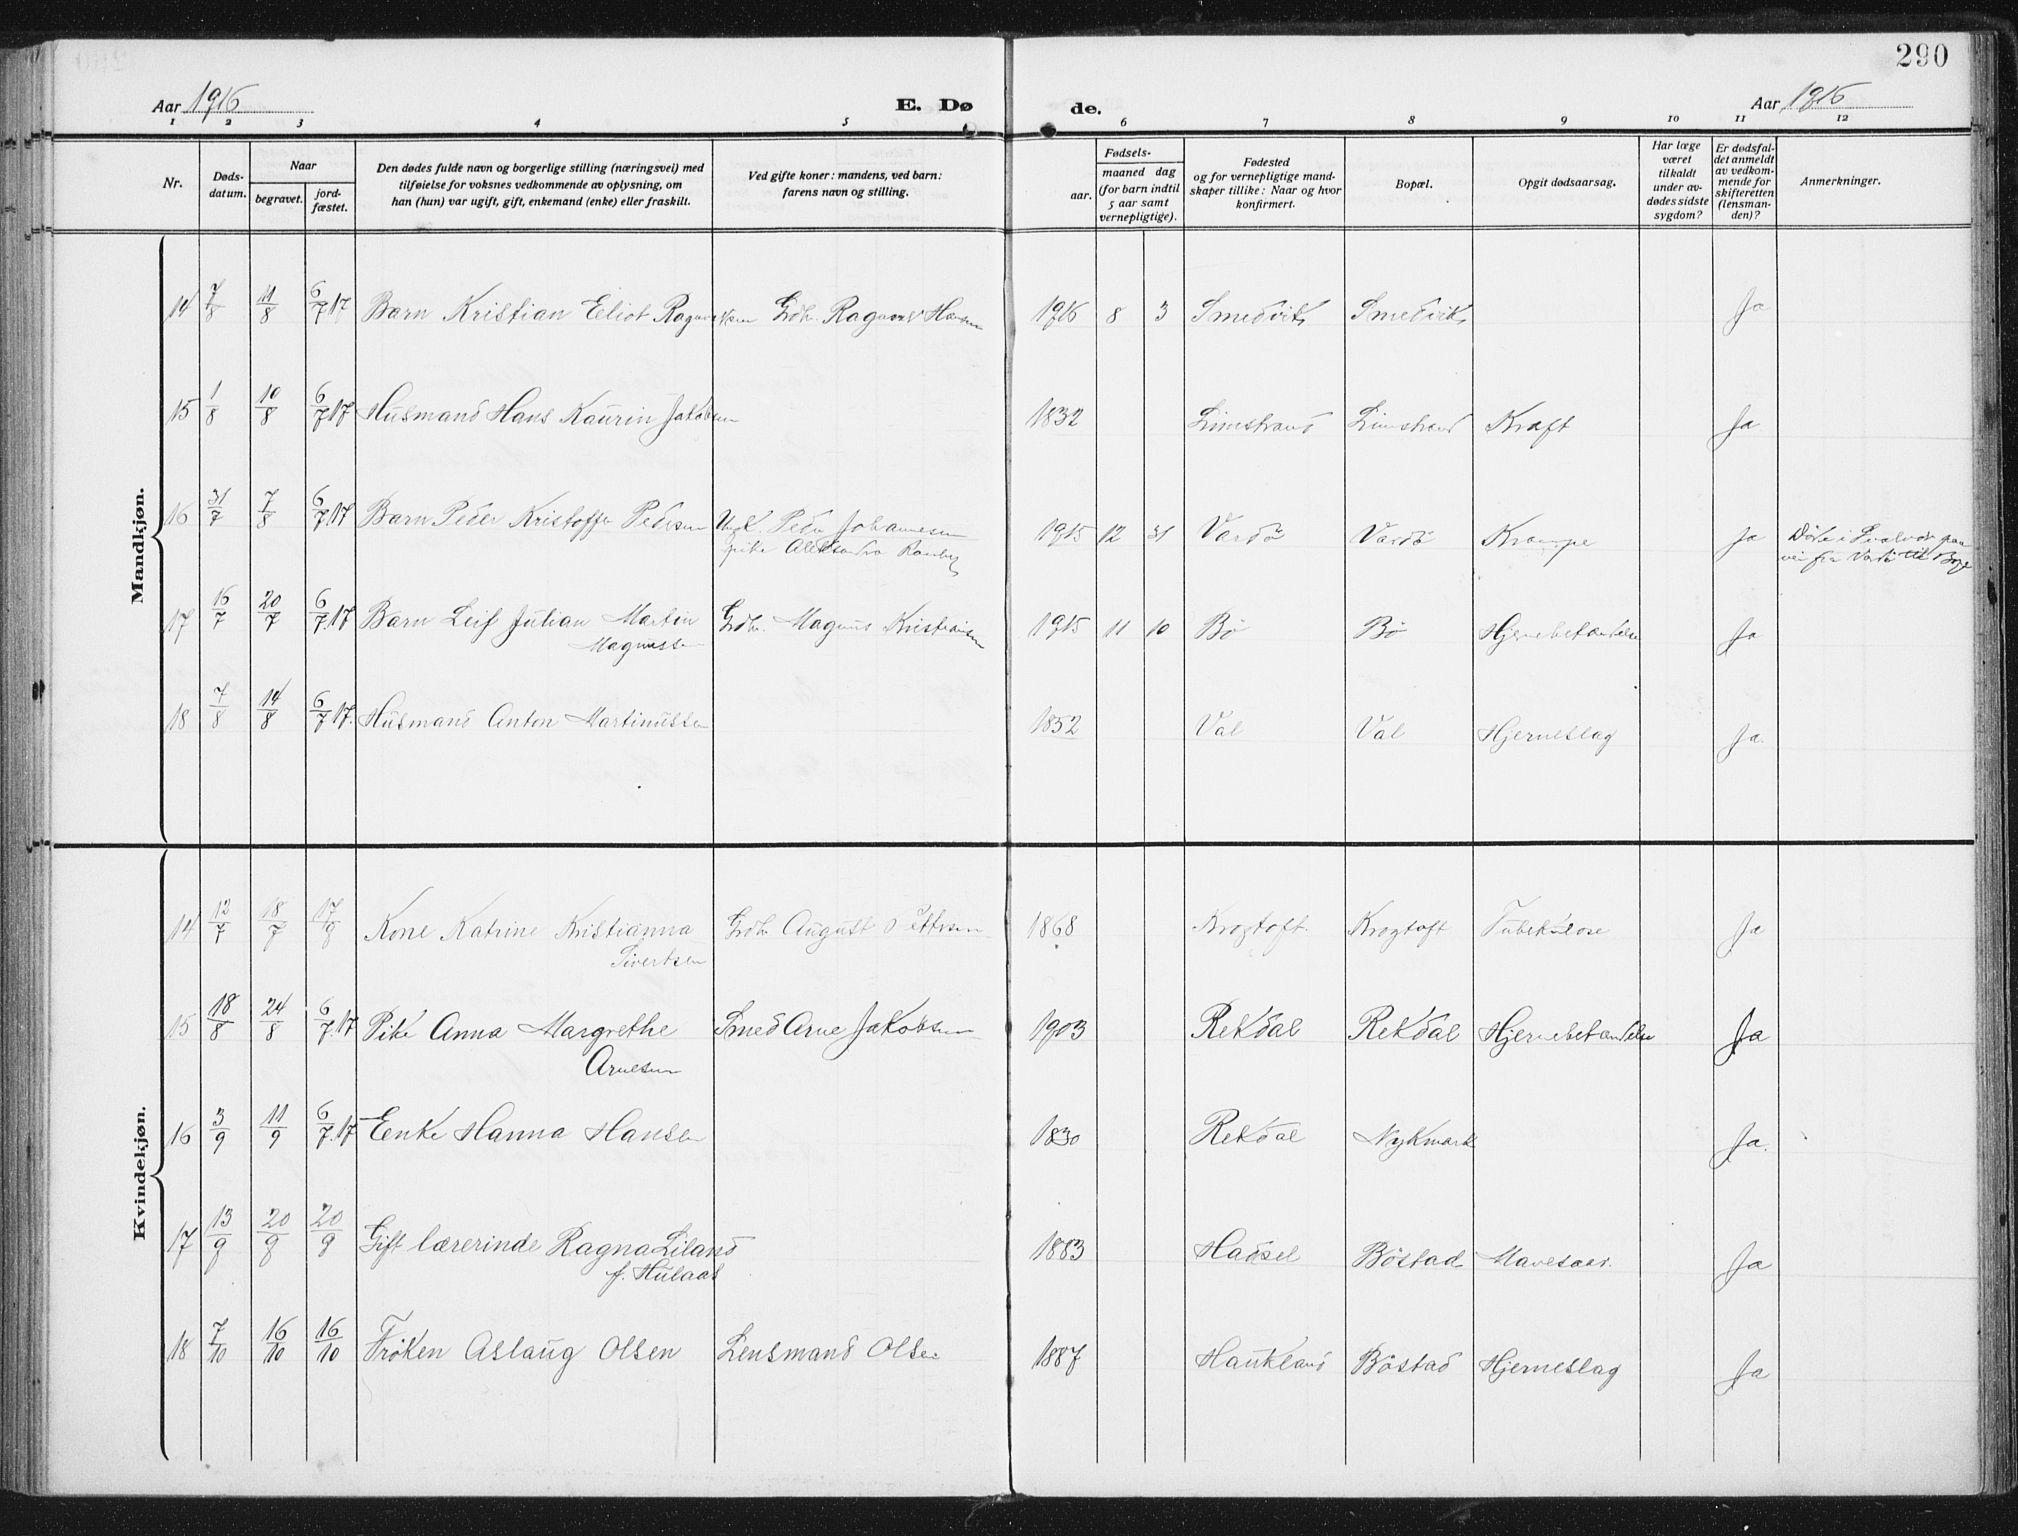 290
Aar 1916 E. Dø de. Aar 1916
1 2 3 4 5 6 7 8 9 10 11 12
Nr.
Døds-
datum.
Naar
begravet.
jord-
fæstet.
Den dødes fulde navn og borgerlige stilling (næringsvei) med
tilføielse for voksnes vedkommende av oplysning, om
han (hun) var ugift, gift, enkemand (enke) eller fraskilt.
Ved gifte koner: mandens, ved barn:
farens navn og stilling.
Fødsels-
aar.
maaned dag
(for barn indtil
5 aar samt
vernepligtige).
Fødested
og for vernepligtige mand-
skaper tillike: Naar og hvor
konfirmert.
Bopæl.
Opgit dødsaarsag.
Har læge
været
tilkaldt
under av-
dødes sidste
sygdom?
Er dødsfal-
det anmeldt
av vedkom-
mende for
skifteretten
(lensman-
den)?
Anmerkninger.
Mandkjøn.
14 7/8 11/8 6/7 17 Barn Kristian Eliot Ragnvaldsen Grdbr. Ragnvald Hansen 1916 8 3 Smedvik Smedvik Ja
15 1/8 10/8 6/7 17 Husmand Hans Kaurin Jakobsen 1832 Limstrand Limstrand Kræft Ja
16 31/7 7/8 6/7 17 Barn Peder Kristoffer Pedersen Ungk. Peder Johannesen 1915 12 31 Vardø Vardø Krampe Ja Døde i Svolvær paa
pike Aleksandra vei fra Vardø til
17 16/7 20/7 6/7 17 Barn Leif Julian Martin Grdbr. Magnus Kristiansen 1915 11 10 Bø Bø Hjernebetændelse Ja
Magnussen
18 7/8 14/8 6/7 17. Husmand Anton Martinussen 1852 Val Val Hjerneslag Ja.
Kvindekjøn.
14 12/7 18/7 17/8 Kone Katrine Kristianna Grdbr August Pettersen 1868 Krogtoft. Krogtoft Tuberkulose Ja
Sivertsen
15 18/8 24/8 6/7. 17 Pike Anna Margrethe Smed Arne Jakobsen 1903 Rekdal Rekdal Hjernebetændelse Ja
Arnesen
16 3/9 11/9 6/7. 17 Enke Hanna Hansen 1830 Rekdal Nykmark Ja.
17 13/9 20/9 20/9 Gift lærerinde Ragna Liland 1883 Hadsel Bøstad Mavesaar. Ja
f. Hulaas
18 7/10 16/10 16/10 Frøken Aslaug Olsen Lensmand Olsen 1887 Haukland Bøstad Hjerneslag Ja